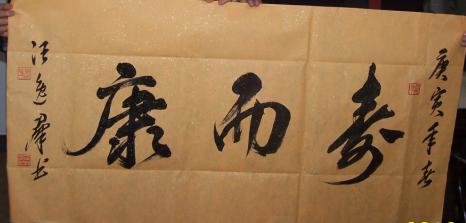 庚寅年春
寿而康
汪逸群书